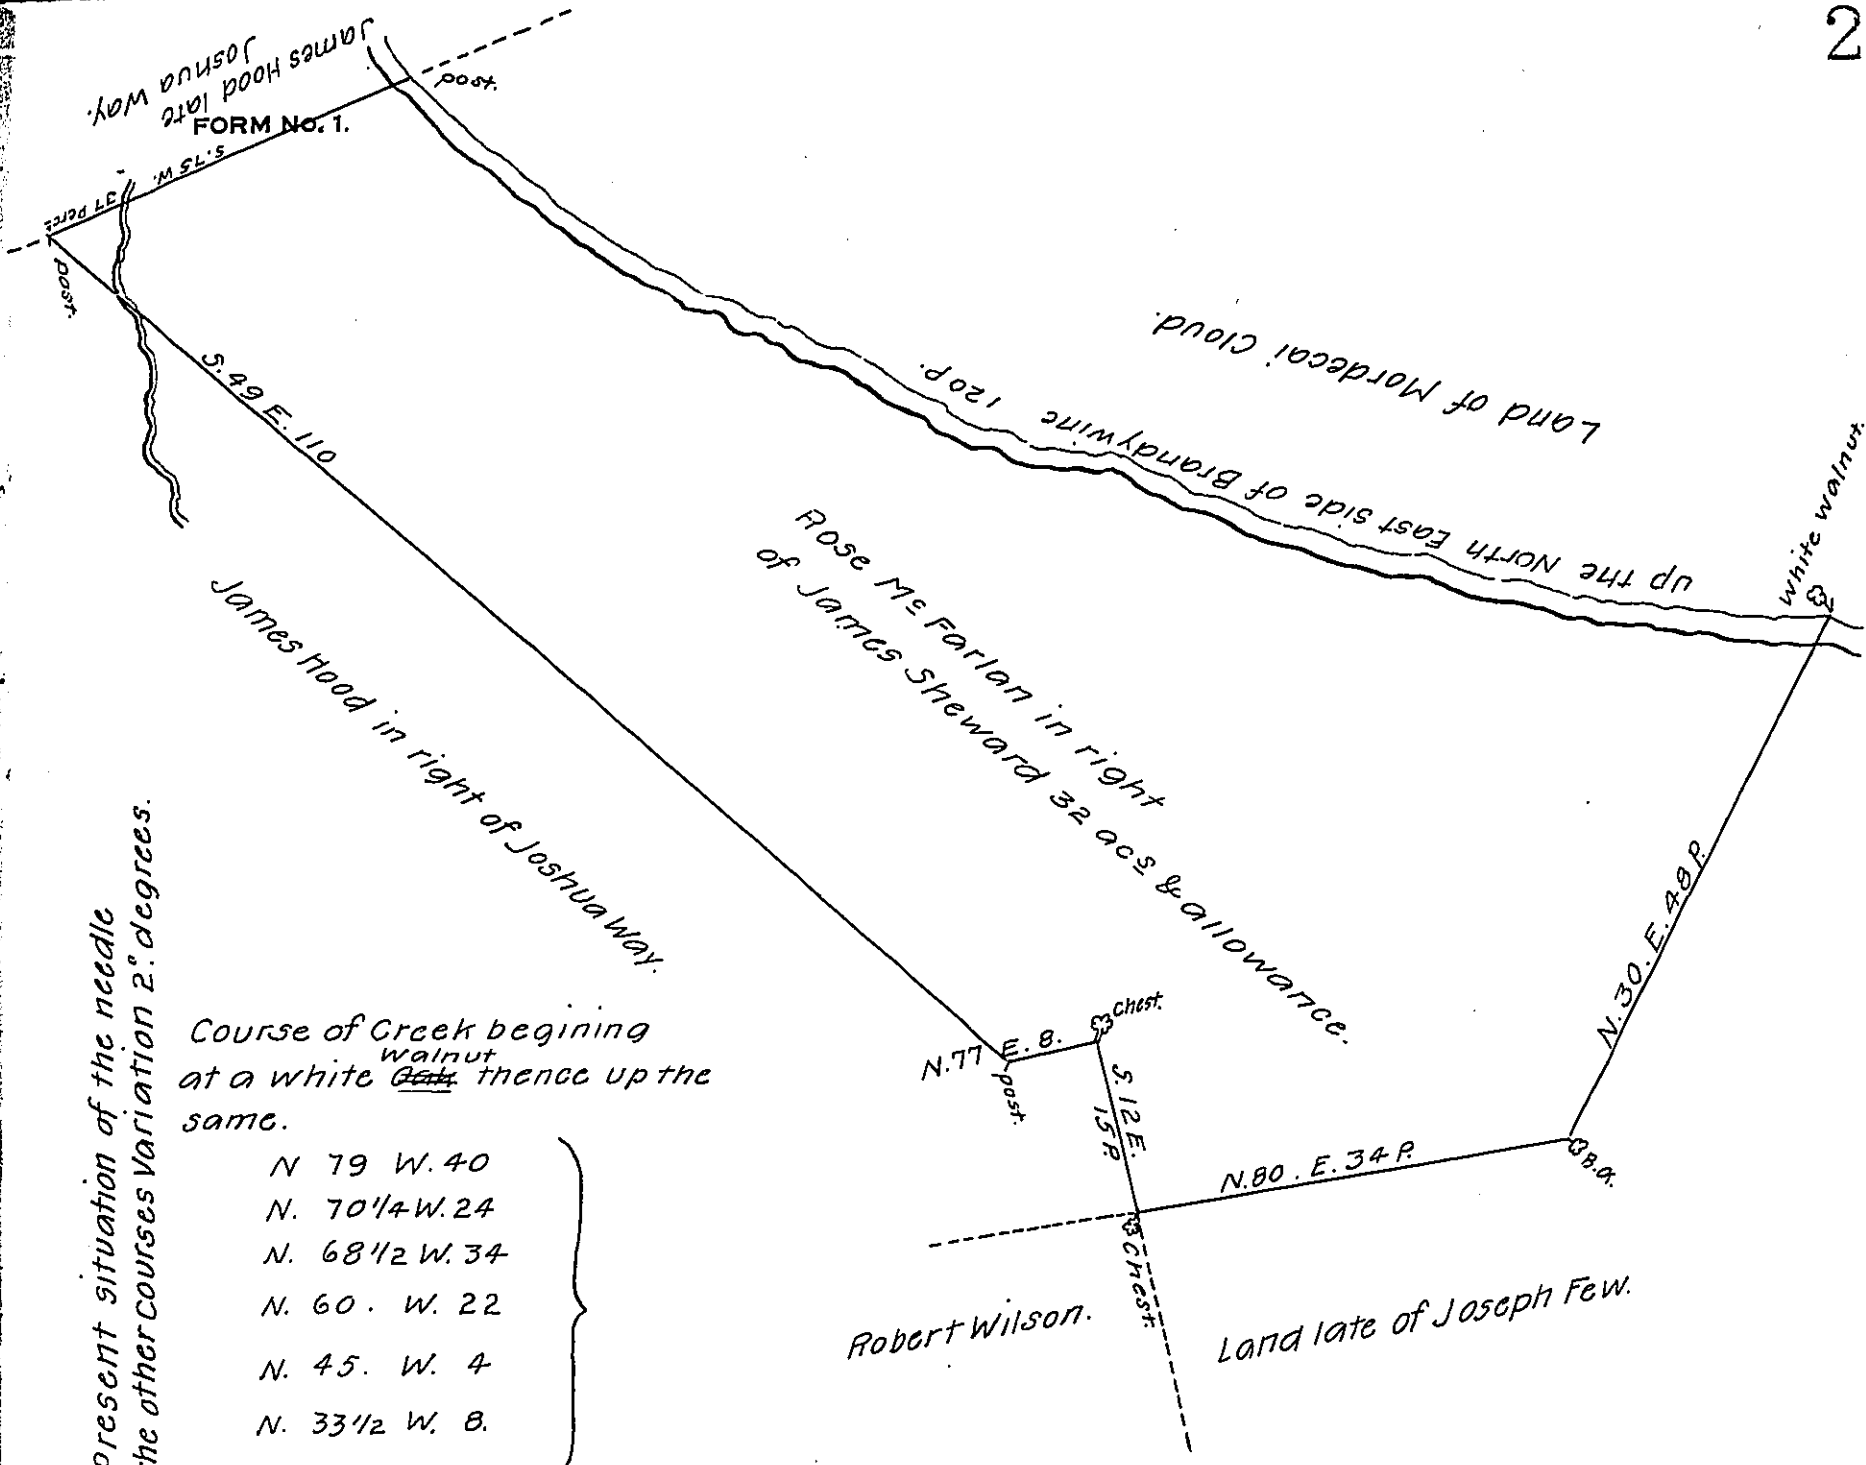 2
James Hood late
Joshua Way.
FORM No. 1.
post.
S. 75 W.
37 Percs
post.
S. 49 E. 110
Land of Mordecai Cloud.
up the North East side of Brandywine 120 P.
White walnut.
Rose Mc Farlan in right
of James Sheward 32 acs & allowance.
James Hood in right of Joshua Way.
N. 30. E. 48 P.
Chest.
N. 77 E. 8.
post.
S. 12 E.
15 P.
N. 80. E. 34 P.
B.O.
Chest.
Robert Wilson.
Land late of Joseph Few.
present situation of the needle
the other courses Variation 2° degrees.
Course of Creek begining
walnut
at a white Oak thence up the
same.
N 79 W. 40
N. 70 1/4 W. 24
N. 68 1/2 W. 34
N. 60. W. 22
N. 45. W. 4
N. 33 1/2 W. 8.